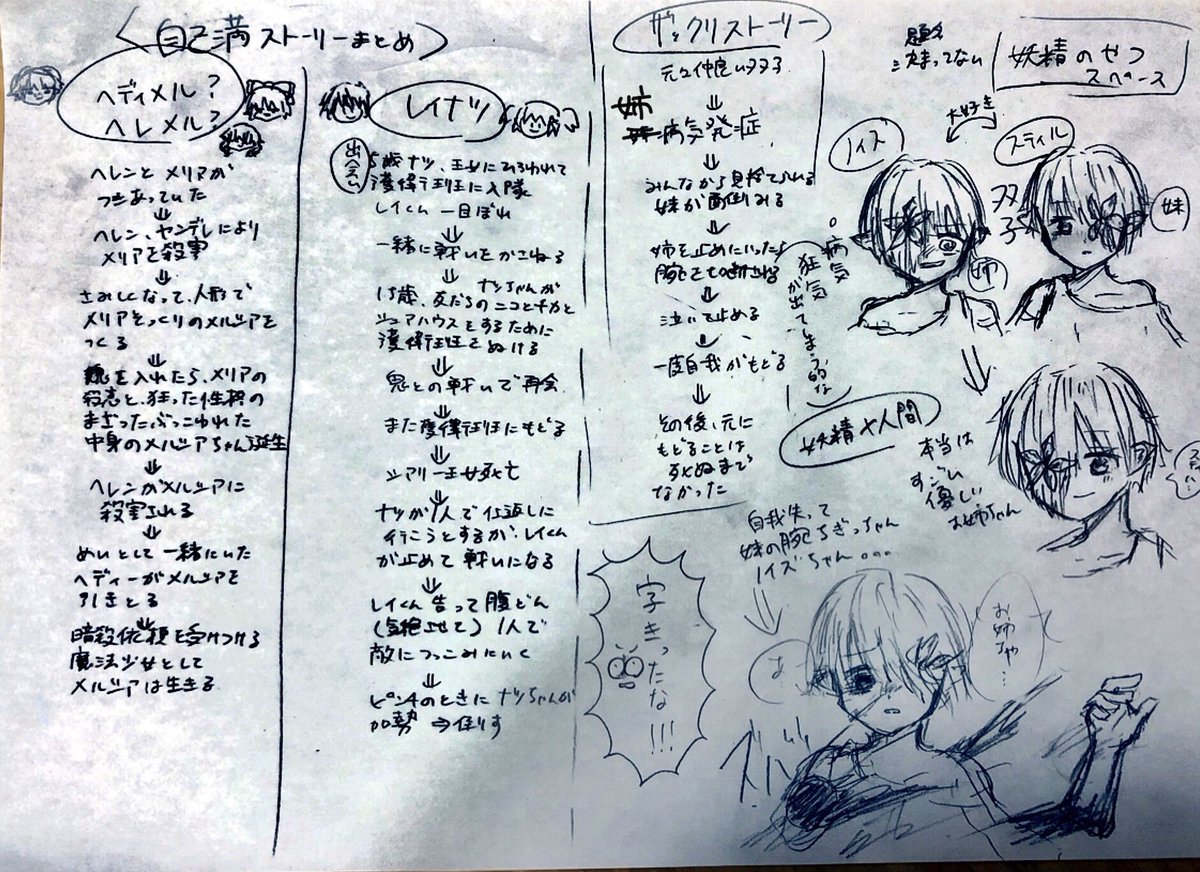 自己満ストーリーまとめ
ヘディメル?
ヘレメル?
ヘレンとメリアが
つきあっていた
⇓
ヘレン、ヤンデレにより
メリアを殺害
⇓
さみしくなって、人形で
メリアそっくりのメルシアを
つくる
⇓
魂を入れたら、メリアの
殺意と、狂った性格の
まざったぶっこわれた
中身のメルシアちゃん誕生
⇓
ヘレンがメルシアに
殺害される
⇓
めいとして一緒にいた
ヘディーがメルシアを
引きとる
⇓
暗殺依頼を受けつける
魔法少女として
メルシアは生きる
レイナツ
出会い
5歳ナツ、王女にひろわれて
護衛に入隊
レイくん一目ぼれ
⇓
一緒に戦いをかさねる
⇓
ナツちゃんが
15歳、友だちのニコとチカと
シェアハウスをするために
護衛をぬける
⇓
鬼との戦いで再会
⇓
また護衛にもどる
⇓
シアリー王女死亡
⇓
ナツが1人で仕返しに
行こうとするが、レイくん
が止めて戦いになる
⇓
レイくん告って腹どん
(気絶させて)1人で
敵につっこみにいく
⇓
ピンチのときにナツちゃんが
加勢⇒倒す
ざっくりストーリー
元々仲良い双子
⇓
姉病気発症
⇓
みんなから見捨てられる
妹が面倒みる
⇓
姉を止めにいったら
腕をもぎ
⇓
泣いて止める
⇓
一度自我がもどる
⇓
その後、元に
もどることは
死ぬまで
なかった
題名
決まってない
妖精のやつ
スペース
大好き
ノイズ
スティル
双子
姉
妹
病気
狂気
が出てしまう的な
妖精×人間
本当は
すごい
優しい
お姉ちゃん
自我失って
妹の腕ちぎっちゃん
ノイズちゃん。。。
字きったな!!!
お姉ちゃ…